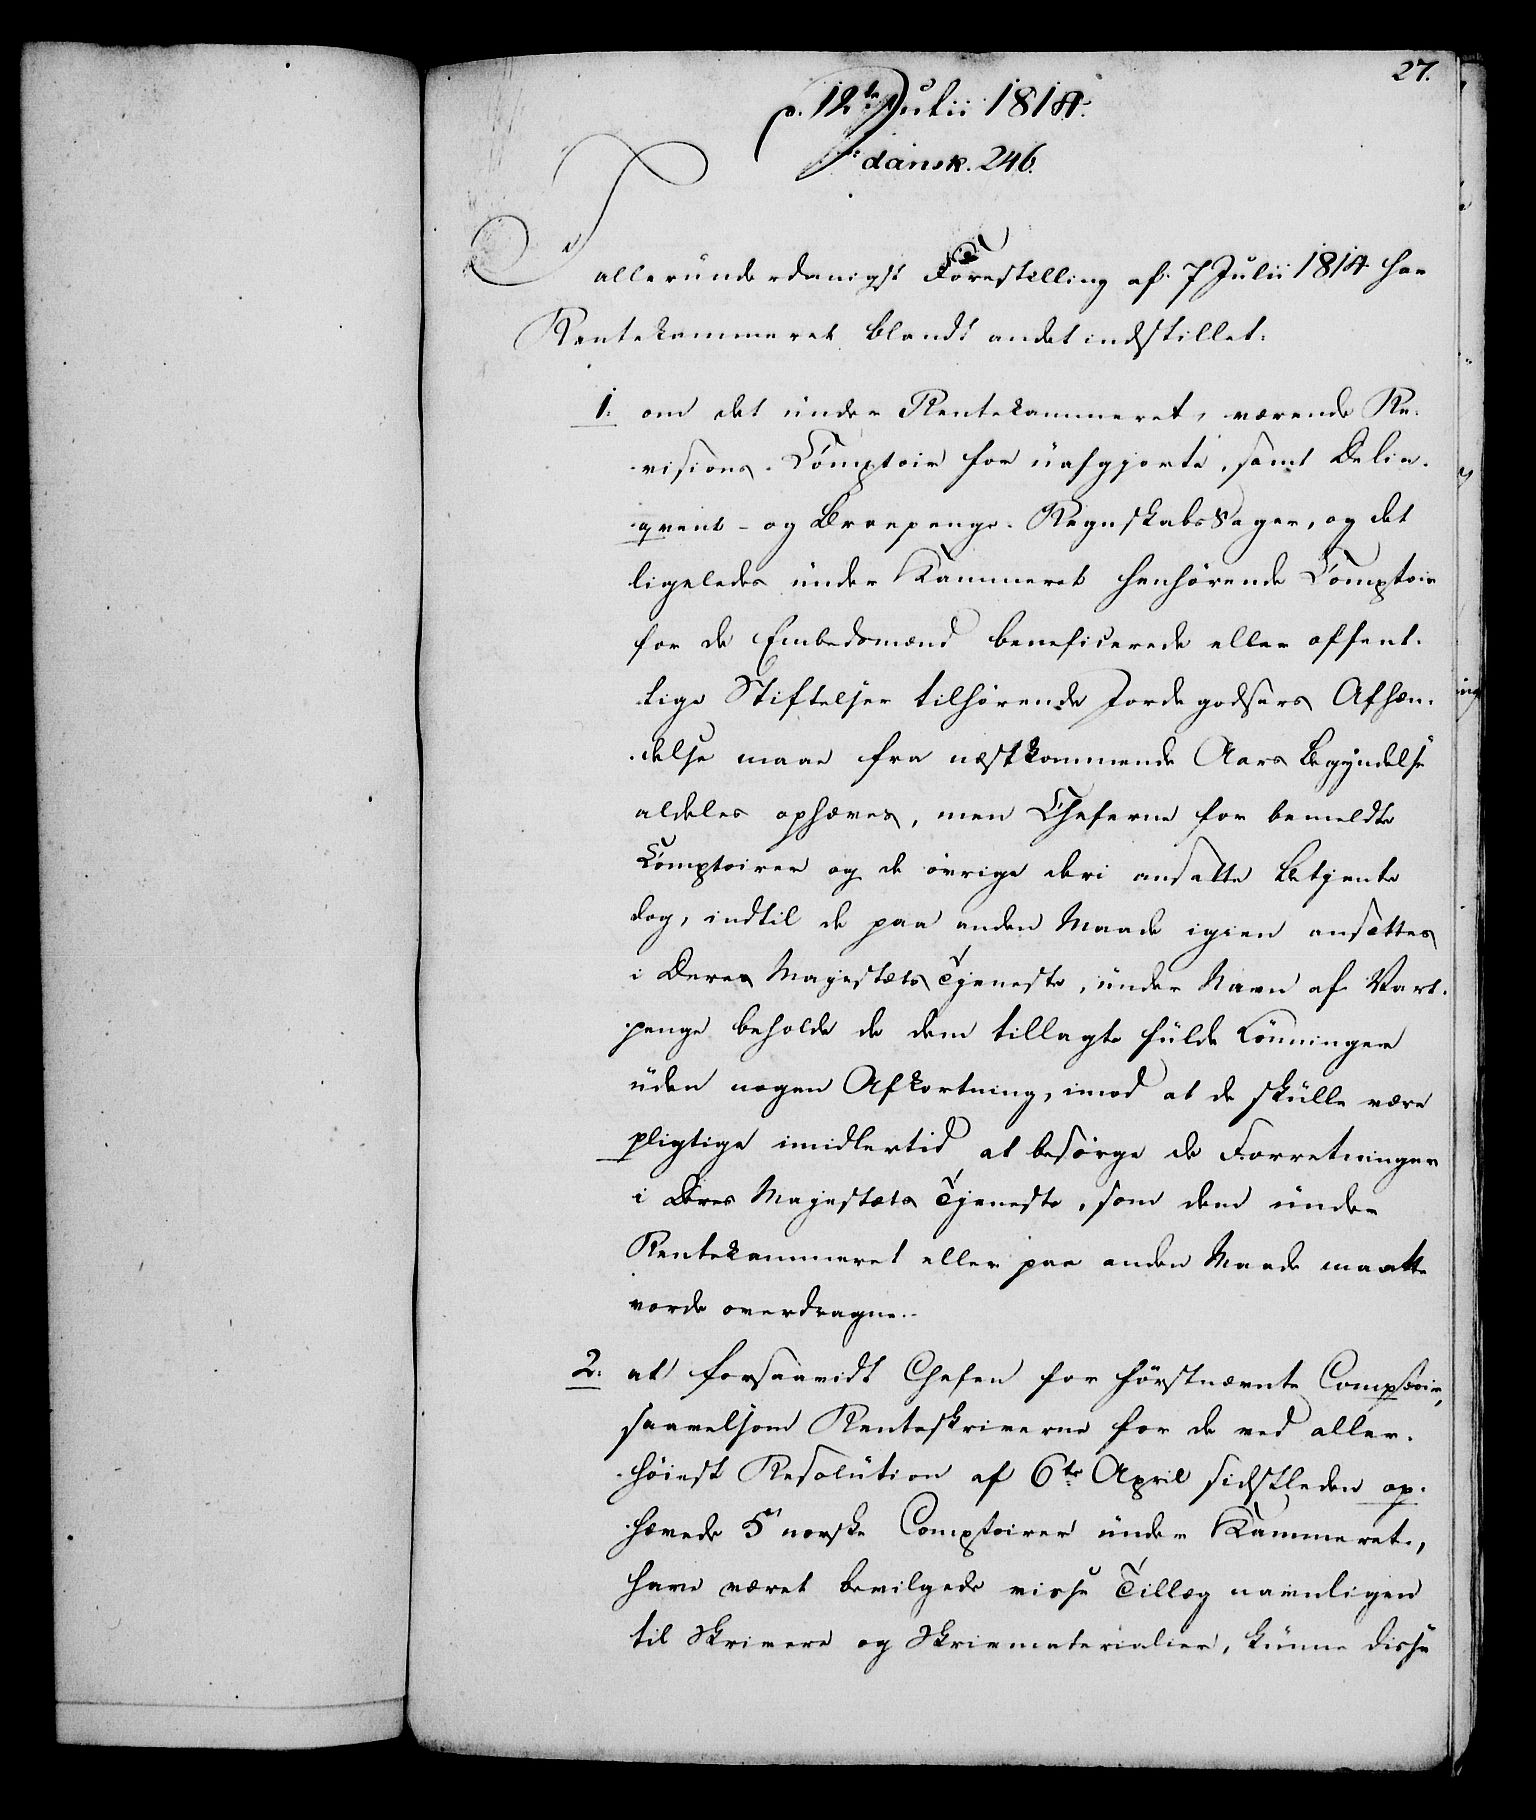 27.
p. 12te Julii 1814.
dansk. 246.
I
allerunderdanigst Forestilling af 7 Julii 1814 har
Rentekammeret blandt andet indstillet:
1. om det under Rentekammeret, værende Re-
visions-Comptoir for uafgjorte, samt Delin-
qvent- og Broepenge-Regnskabs Sager, og det
ligeledes under Kammeret henhörende Comptoir
for de Embedsmænd beneficerede eller offent-
lige Stiftelser tilhörende Jordegodsers Afhæn-
delse maae fra næstkommende Aars Begyndelse
aldeles ophæves, men Cheferne for bemeldte
Comptoirer og de övrige deri ansatte Betjente
dog, indtil de paa anden Maade igien ansættes
i Deres Majestæts Tjeneste, under Navn af Vart-
penge beholde de dem tillagte fulde Lönninger
uden nogen Afkortning, imod at de skulle være
pligtige imidlertid at besörge de Forretninger
i Deres Majestæts Tjeneste, som dem under
Rentekammeret eller paa anden Maade maatte
vorde overdragne.
2. at forsaavidt Chefen for förstnævnte Comptoir,
saavelsom Renteskriverne for de ved aller-
höiest Resolution af 6te April sidstleden op-
hævede 5 norske Comptoirer under Kammeret,
have været bevilgede visse Tillæg navnligen
til Skrivere og Skrivematerialier, kunne disse